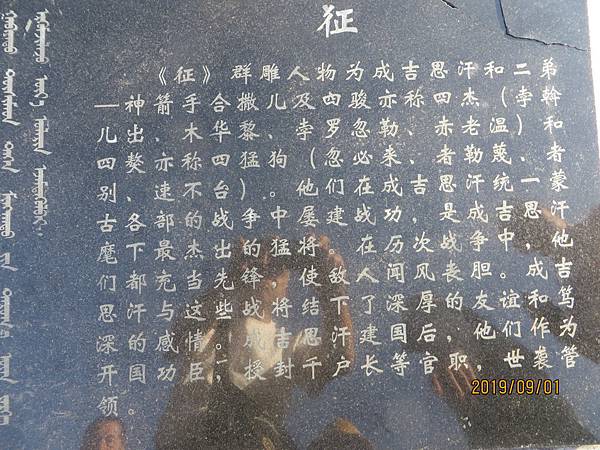 征
《征》群雕人物为成吉思汗和二弟
—神箭手合撒儿及四骏亦称四杰（孛斡
儿出、木华黎、孛罗忽勒、赤老温）和
四獒亦称四猛狗（忽必来、者勒蔑、者
别、速不台）。他们在成吉思汗统一蒙
古各部的战争中屡建战功，是成吉思汗
麾下最杰出的猛将。在历次战争中，他
们都充当先锋，使敌人闻风丧胆。成吉
思汗与这些战将结下了深厚的友谊和笃
深的感情。成吉思汗建国后，他们作为
开国功臣，授封千户长等官职，世袭管
领。
2019/09/01